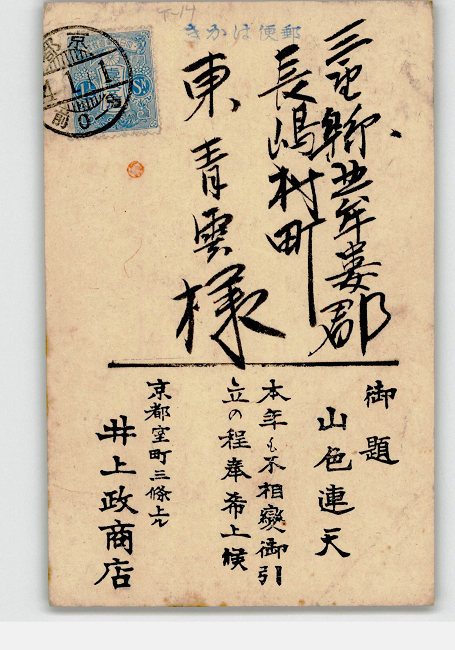 きかは便郵
京都
4.1.1
前0-
三重縣北牟婁郡
長嶋村町
東青雲様
御題
山色連天
本年も不相變御引
立の程奉希上候
京都室町三條上ル
井上政商店